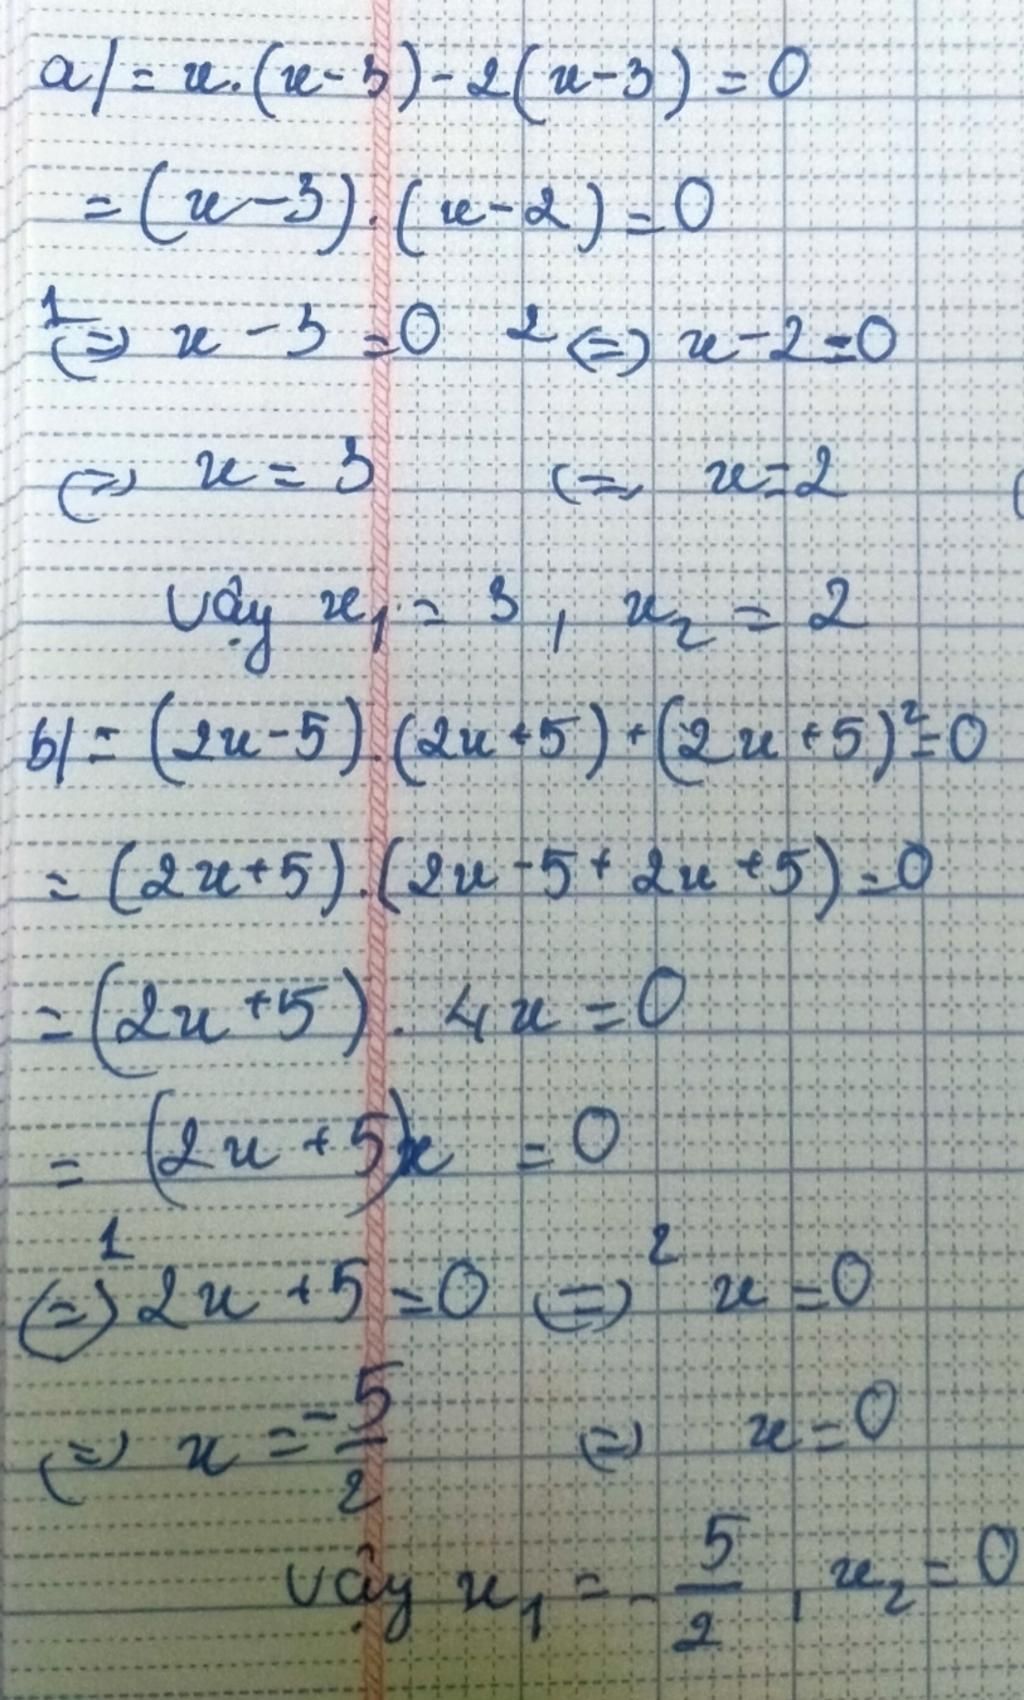 a/ = x.(x-3)-2(x-3) = 0
= (x-3).(x-2) = 0
1 <=> x-3 = 0 2 <=> x-2 = 0
<=> x = 3 <=> x = 2
Vậy x₁ = 3, x₂ = 2
b/ = (2x-5).(2x+5)+(2x+5)² = 0
= (2x+5).(2x-5+2x+5) = 0
= (2x+5).4x = 0
= (2x+5)x = 0
<=> 1 2x+5 = 0 <=> 2 x = 0
<=> x = -5/2 <=> x = 0
Vậy x₁ = -5/2, x₂ = 0